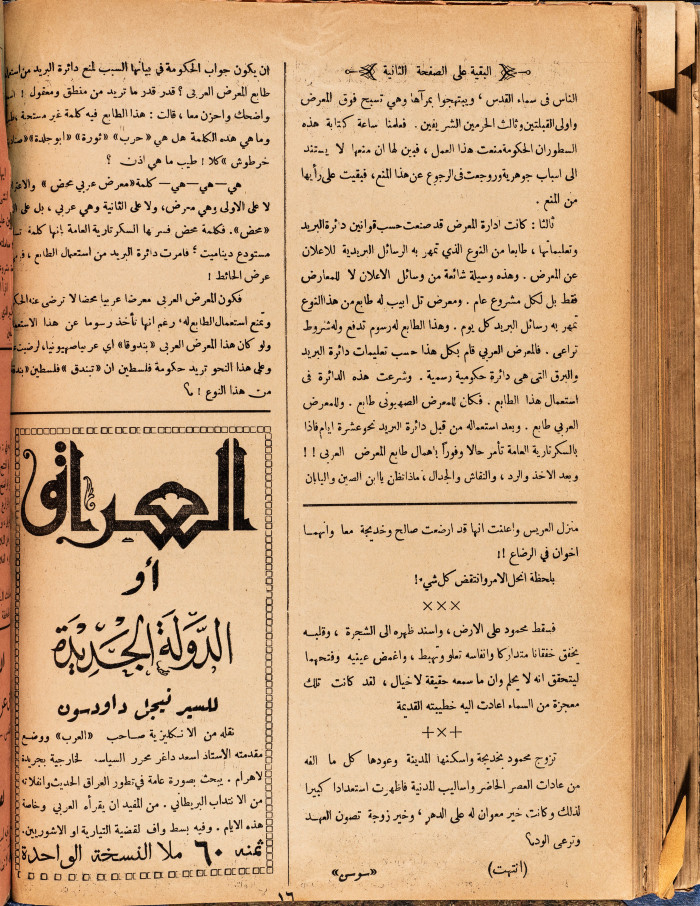 البقية على الصفحة الثانية
الناس في سماء القدس ، ويبتهجوا بمرآها وهي تسبح فوق المعرض
واولى القبلتين وثالث الحرمين الشريفين . فعلمنا ساعة كتابة هذه
السطور ان الحكومة منعت هذا العمل ، فبين لها ان منعها لا يستند
الى اسباب جوهرية وروجعت في الرجوع عن هذا المنع، فبقيت على رأيها
من المنع .
ثالثا : كانت ادارة المعرض قد صنعت حسب قوانين دائرة البريد
وتعليماتها ، طابعا من النوع الذي تمهر به الرسائل البريدية للاعلان
عن المعرض . وهذه وسيلة شائعة من وسائل الاعلان لا للمعارض
فقط بل لكل مشروع عام . ومعرض تل ابيب له طابع من هذا النوع
تمهر به رسائل البريد كل يوم . وهذا الطابع له رسوم تدفع وله شروط
تراعى . فالمعرض العربي قام بكل هذا حسب تعليمات دائرة البريد
والبرق التي هي دائرة حكومية رسمية . وشرعت هذه الدائرة في
استعمال هذا الطابع . فكان للمعرض الصهيوني طابع . وللمعرض
العربي طابع . وبعد استعماله من قبل دائرة البريد نحو عشرة ايام فاذا
بالسكرتارية العامة تأمر حالا وفوراً باهمال طابع المعرض العربي ! !
وبعد الاخذ والرد ، والنقاش والجدال ، ماذا تظن يا ابن الصين واليابان
ان يكون جواب الحكومة في بيانها السبب لمنع دائرة البريد من
طابع المعرض العربي ؟ قدر قدر ما تريد من منطق ومعقول !
واضحك واحزن معا ، قالت : هذا الطابع فيه كلمة غير مستحبة
وما هي هذه الكلمة هل هي «حرب» «ثورة» «ابو جلدة»
خرطوش » كلا ! طيب ما هي اذن ؟
هي — هي — هي — كلمة «معرض عربي محض »
لا على الاولى وهي معرض، ولا على الثانية وهي عربي ، بل على
«محض». فكلمة محض فسرها السكرتارية العامة بانها كلمة
مستودع ديناميت ؛ فامرت دائرة البريد من استعمال الطابع ،
عرض الحائط !
فكون المعرض العربي معرضا عربيا محضا لا ترضى عنه
وتمنع استعمال الطابع له، رغم انها تأخذ رسوما عن هذا
ولو كان هذا المعرض العربي «بندوقا» اي عربيا صهيونيا،
وعلى هذا النحو تريد حكومة فلسطين ان «تبندق » فلسطين
من هذا النوع ! م؟
منزل العريس واعلنت انها قد ارضعت صالح وخديجة معا وانهما
اخوان في الرضاع !!
بلحظة انحل الامر وانتقض كل شيء !
×××
فسقط محمود على الارض ، واسند ظهره الى الشجرة ، وقلبه
يخفق خفقانا متداركا وانفاسه تعلو وتهبط ، واغمض عينيه وفتحهما
ليتحقق انه لا يحلم وان ما سمعه حقيقة لا خيال ، لقد كانت تلك
معجزة من السماء اعادت اليه خطيبته القديمة
+×+
تزوج محمود بخديجة واسكنها المدينة وعودها كل ما الفه
من عادات العصر الحاضر واساليب المدنية فاظهرت استعدادا كبيرا
لذلك وكانت خير معوان له على الدهر ، وخير زوجة تصون العهد
وترعى الود م؟
(انتهت) «سوسن»
العراق
أو
الدَّولَة الجَديدَة
للسير نيجل داودسون
نقله من الانكليزية صاحب «العرب» ووضع
مقدمته الاستاذ اسعد داغر محرر السياسة الخارجية بجريدة
الاهرام . يبحث بصورة عامة في تطور العراق الحديث وانفلاته
من الانتداب البريطاني . من المفيد ان يقرأه العربي وخاصة
هذه الايام . وفيه بسط واف لقضية التيارية او الاشوريين.
ثمنه ٦٠ ملا النسخة الواحدة
١٦